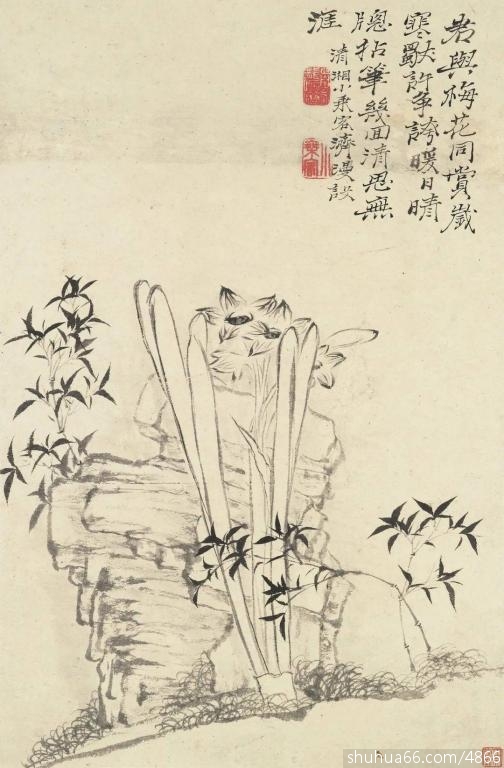 君與梅花同賞歲
寒獻許爭誇暖日晴
牕拈筆幾回清思無
涯
清湘小乘客濟漫設
shuhua66.com/4866